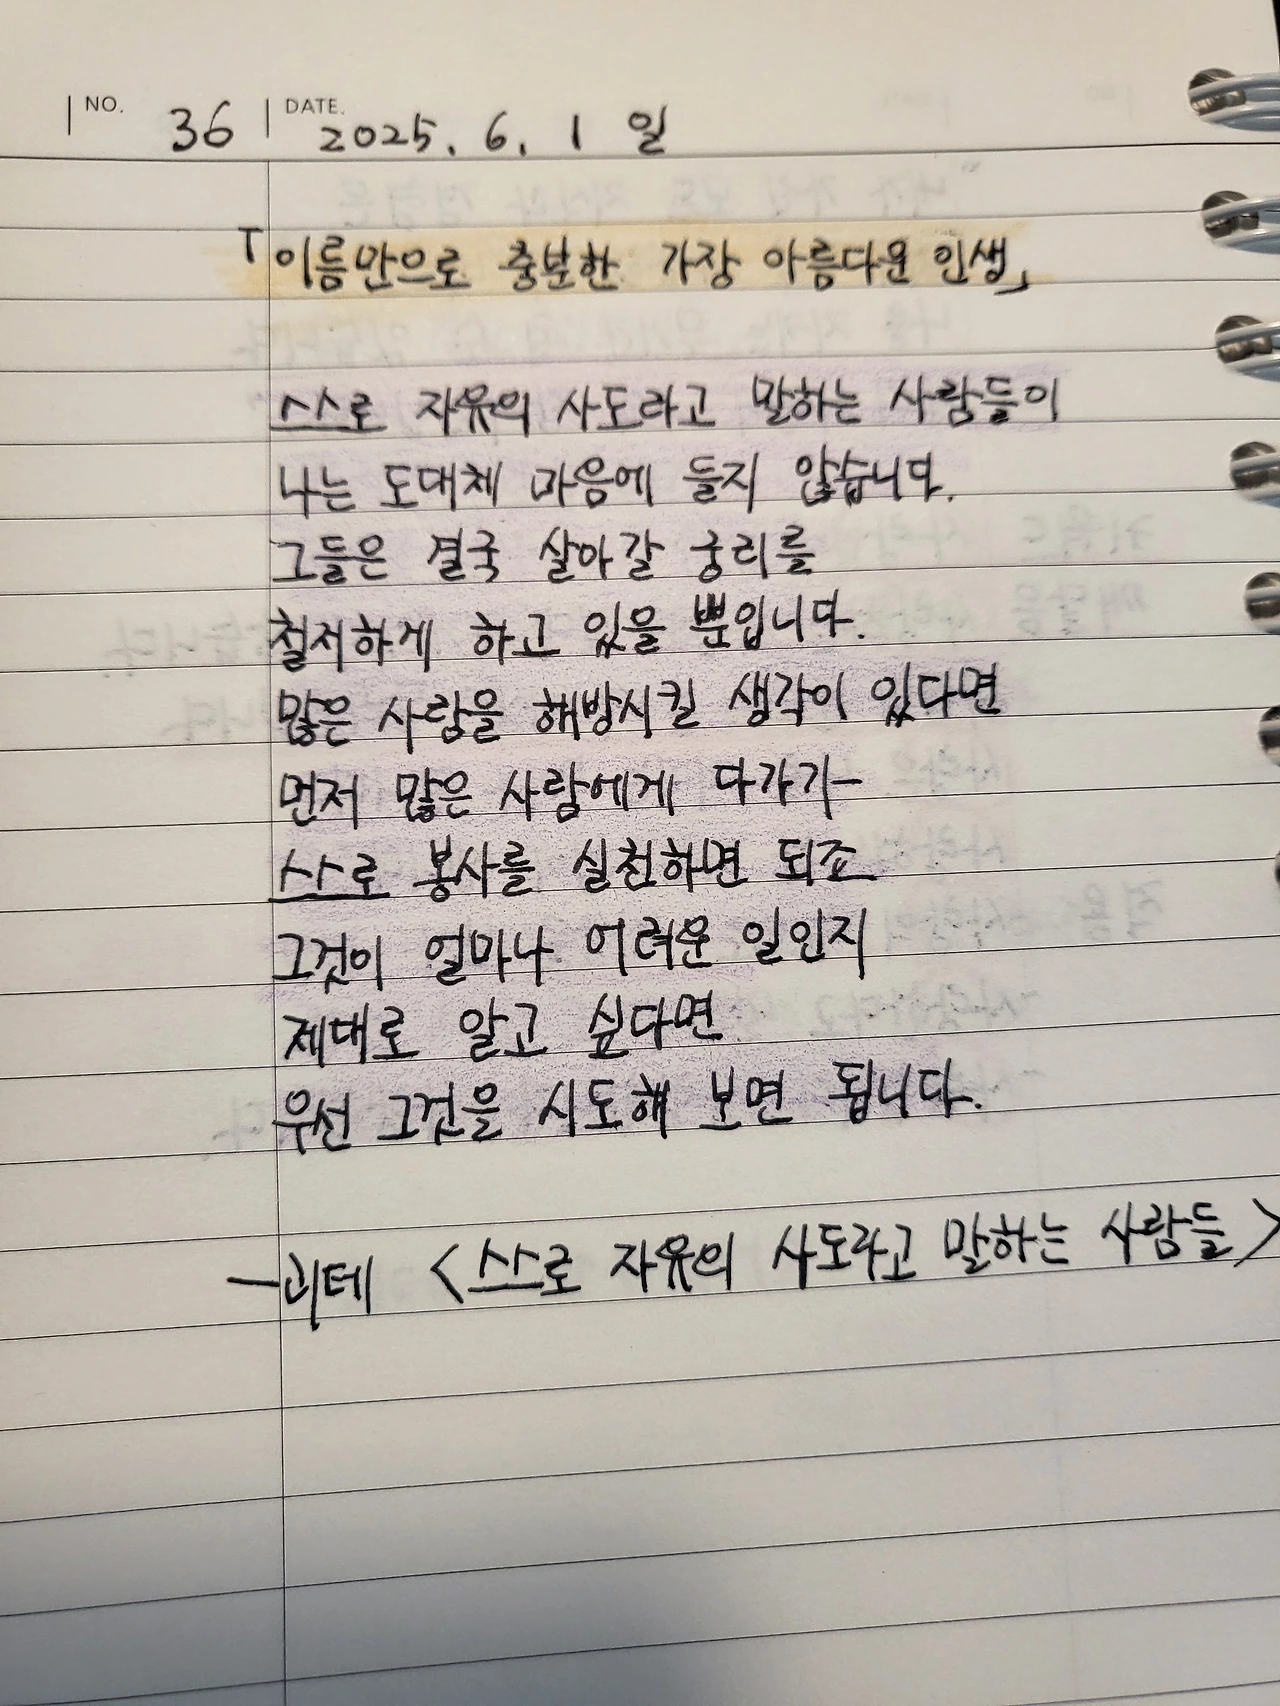 NO. 36 DATE. 2025. 6. 1 일
「이름만으로 충분한 가장 아름다운 인생」
스스로 자유의 사도라고 말하는 사람들이
나는 도대체 마음에 들지 않습니다.
그들은 결국 살아갈 궁리를
철저하게 하고 있을 뿐입니다.
많은 사람을 해방시킬 생각이 있다면
먼저 많은 사람에게 다가가
스스로 봉사를 실천하면 되죠
그것이 얼마나 어려운 일인지
제대로 알고 싶다면
우선 그것을 시도해 보면 됩니다.
-괴테 <스스로 자유의 사도라고 말하는 사람들>